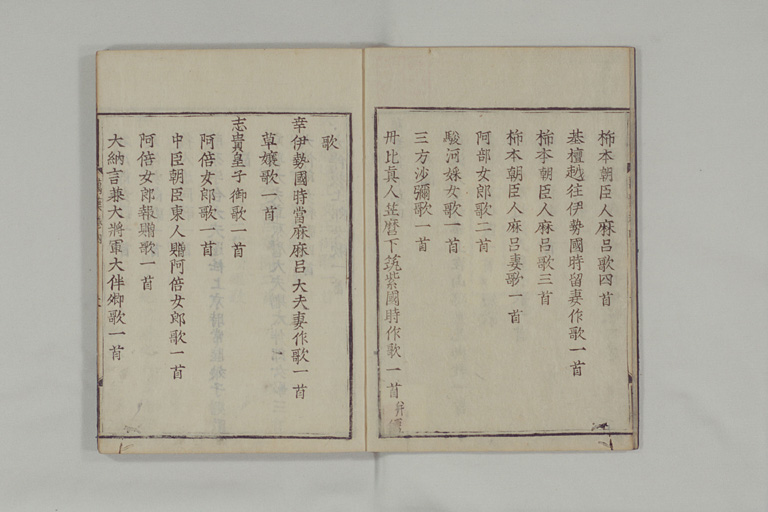 柿本朝臣人麻呂歌四首
基檀越往伊勢國時留妻作歌一首
柿本朝臣人麻呂歌三首
柿本朝臣人麻呂妻歌一首
阿部女郎歌二首
駿河婇女歌一首
三方沙彌歌一首
丹比真人笠麿下筑紫國時作歌一首
歌
幸伊勢國時當麻麻呂大夫妻作歌一首
草孃歌一首
志貴皇子御歌一首
阿倍女郎歌一首
中臣朝臣東人贈阿倍女郎歌一首
阿倍女郎報贈歌一首
大納言兼大將軍大伴卿歌一首